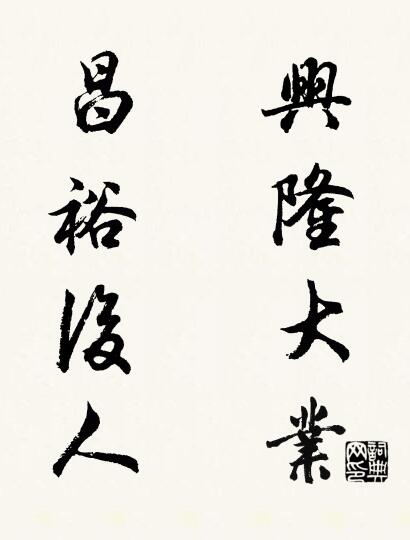 興隆大業
昌裕後人
詞典網印